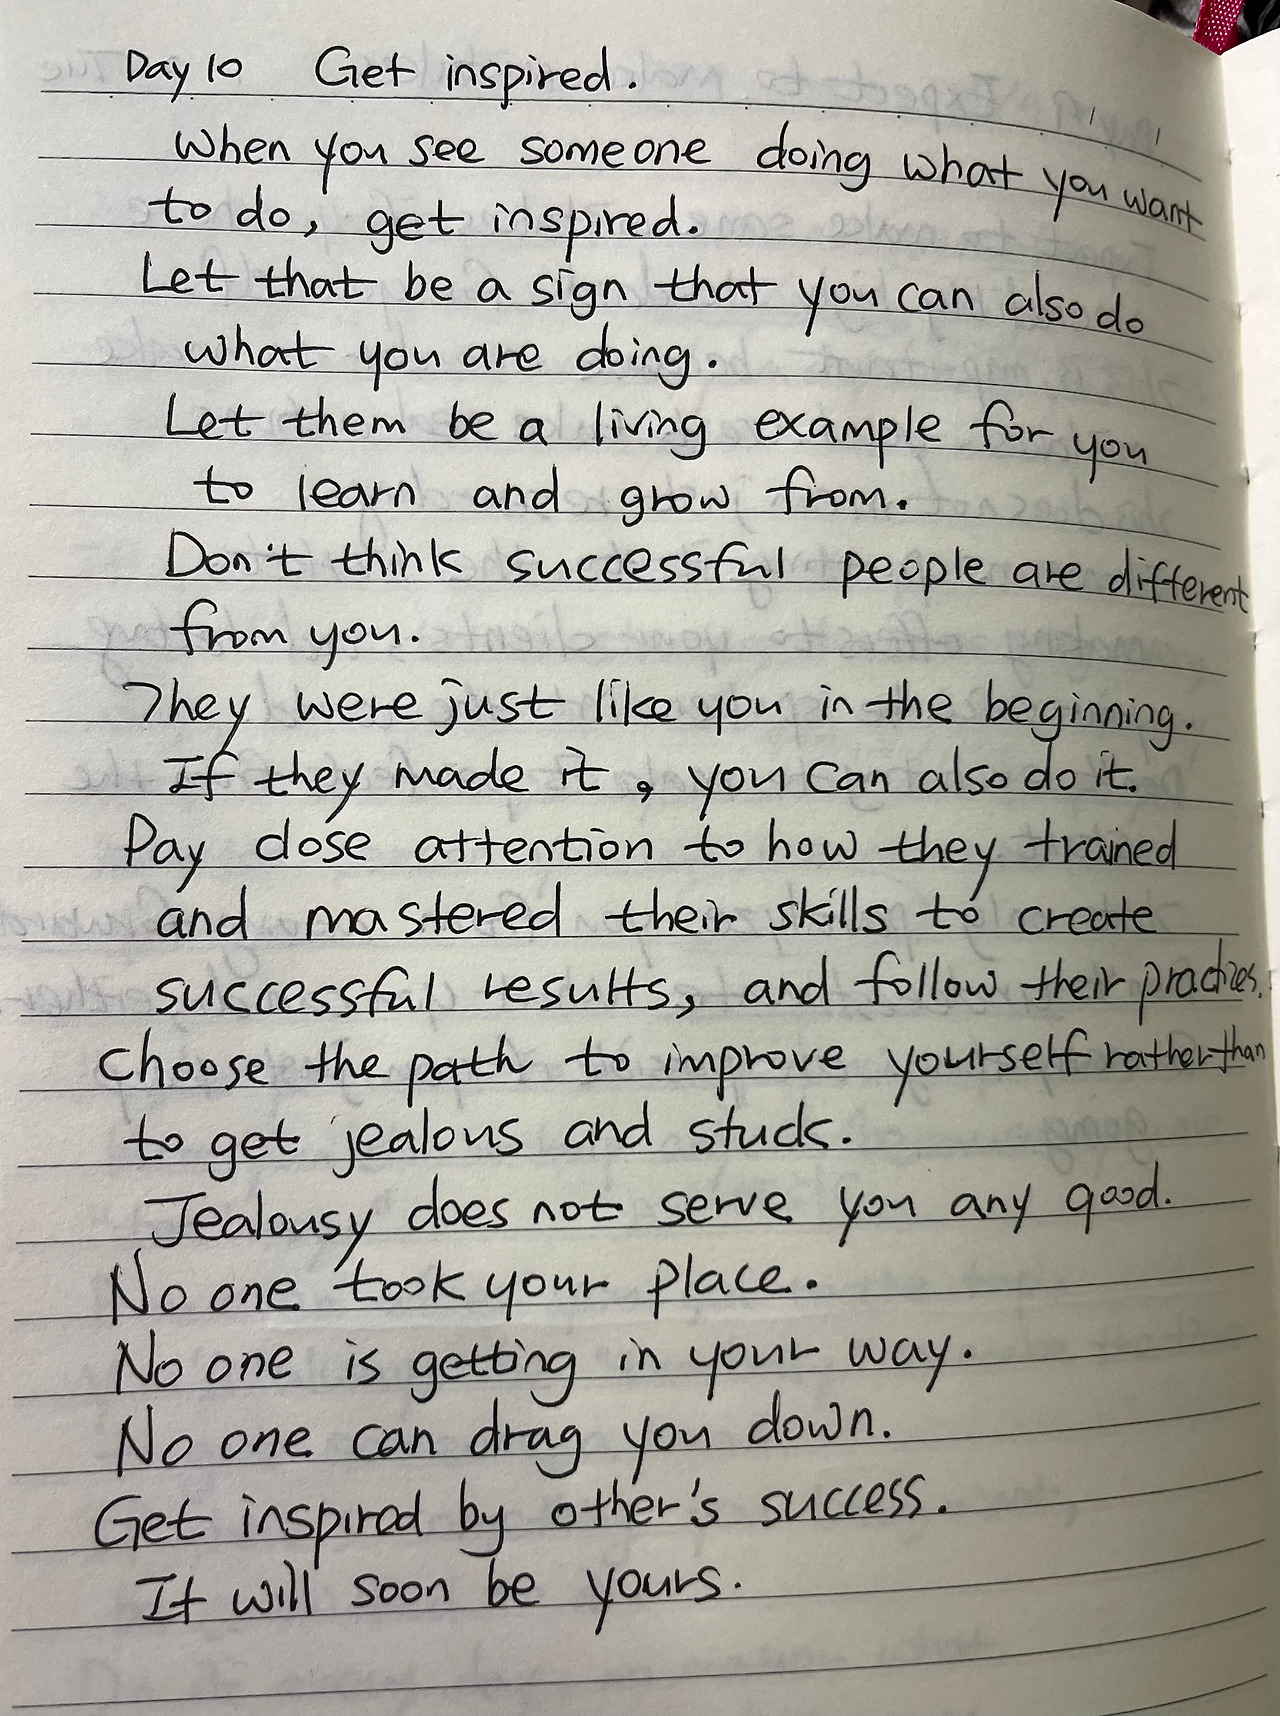 Day 10 Get inspired.
When you see someone doing what you want
to do, get inspired.
Let that be a sign that you can also do
what you are doing.
Let them be a living example for you
to learn and grow from.
Don't think successful people are different
from you.
They were just like you in the beginning.
If they made it, you can also do it.
Pay close attention to how they trained
and mastered their skills to create
successful results, and follow their practices.
Choose the path to improve yourself rather than
to get jealous and stuck.
Jealousy does not serve you any good.
No one took your place.
No one is getting in your way.
No one can drag you down.
Get inspired by other's success.
It will soon be yours.